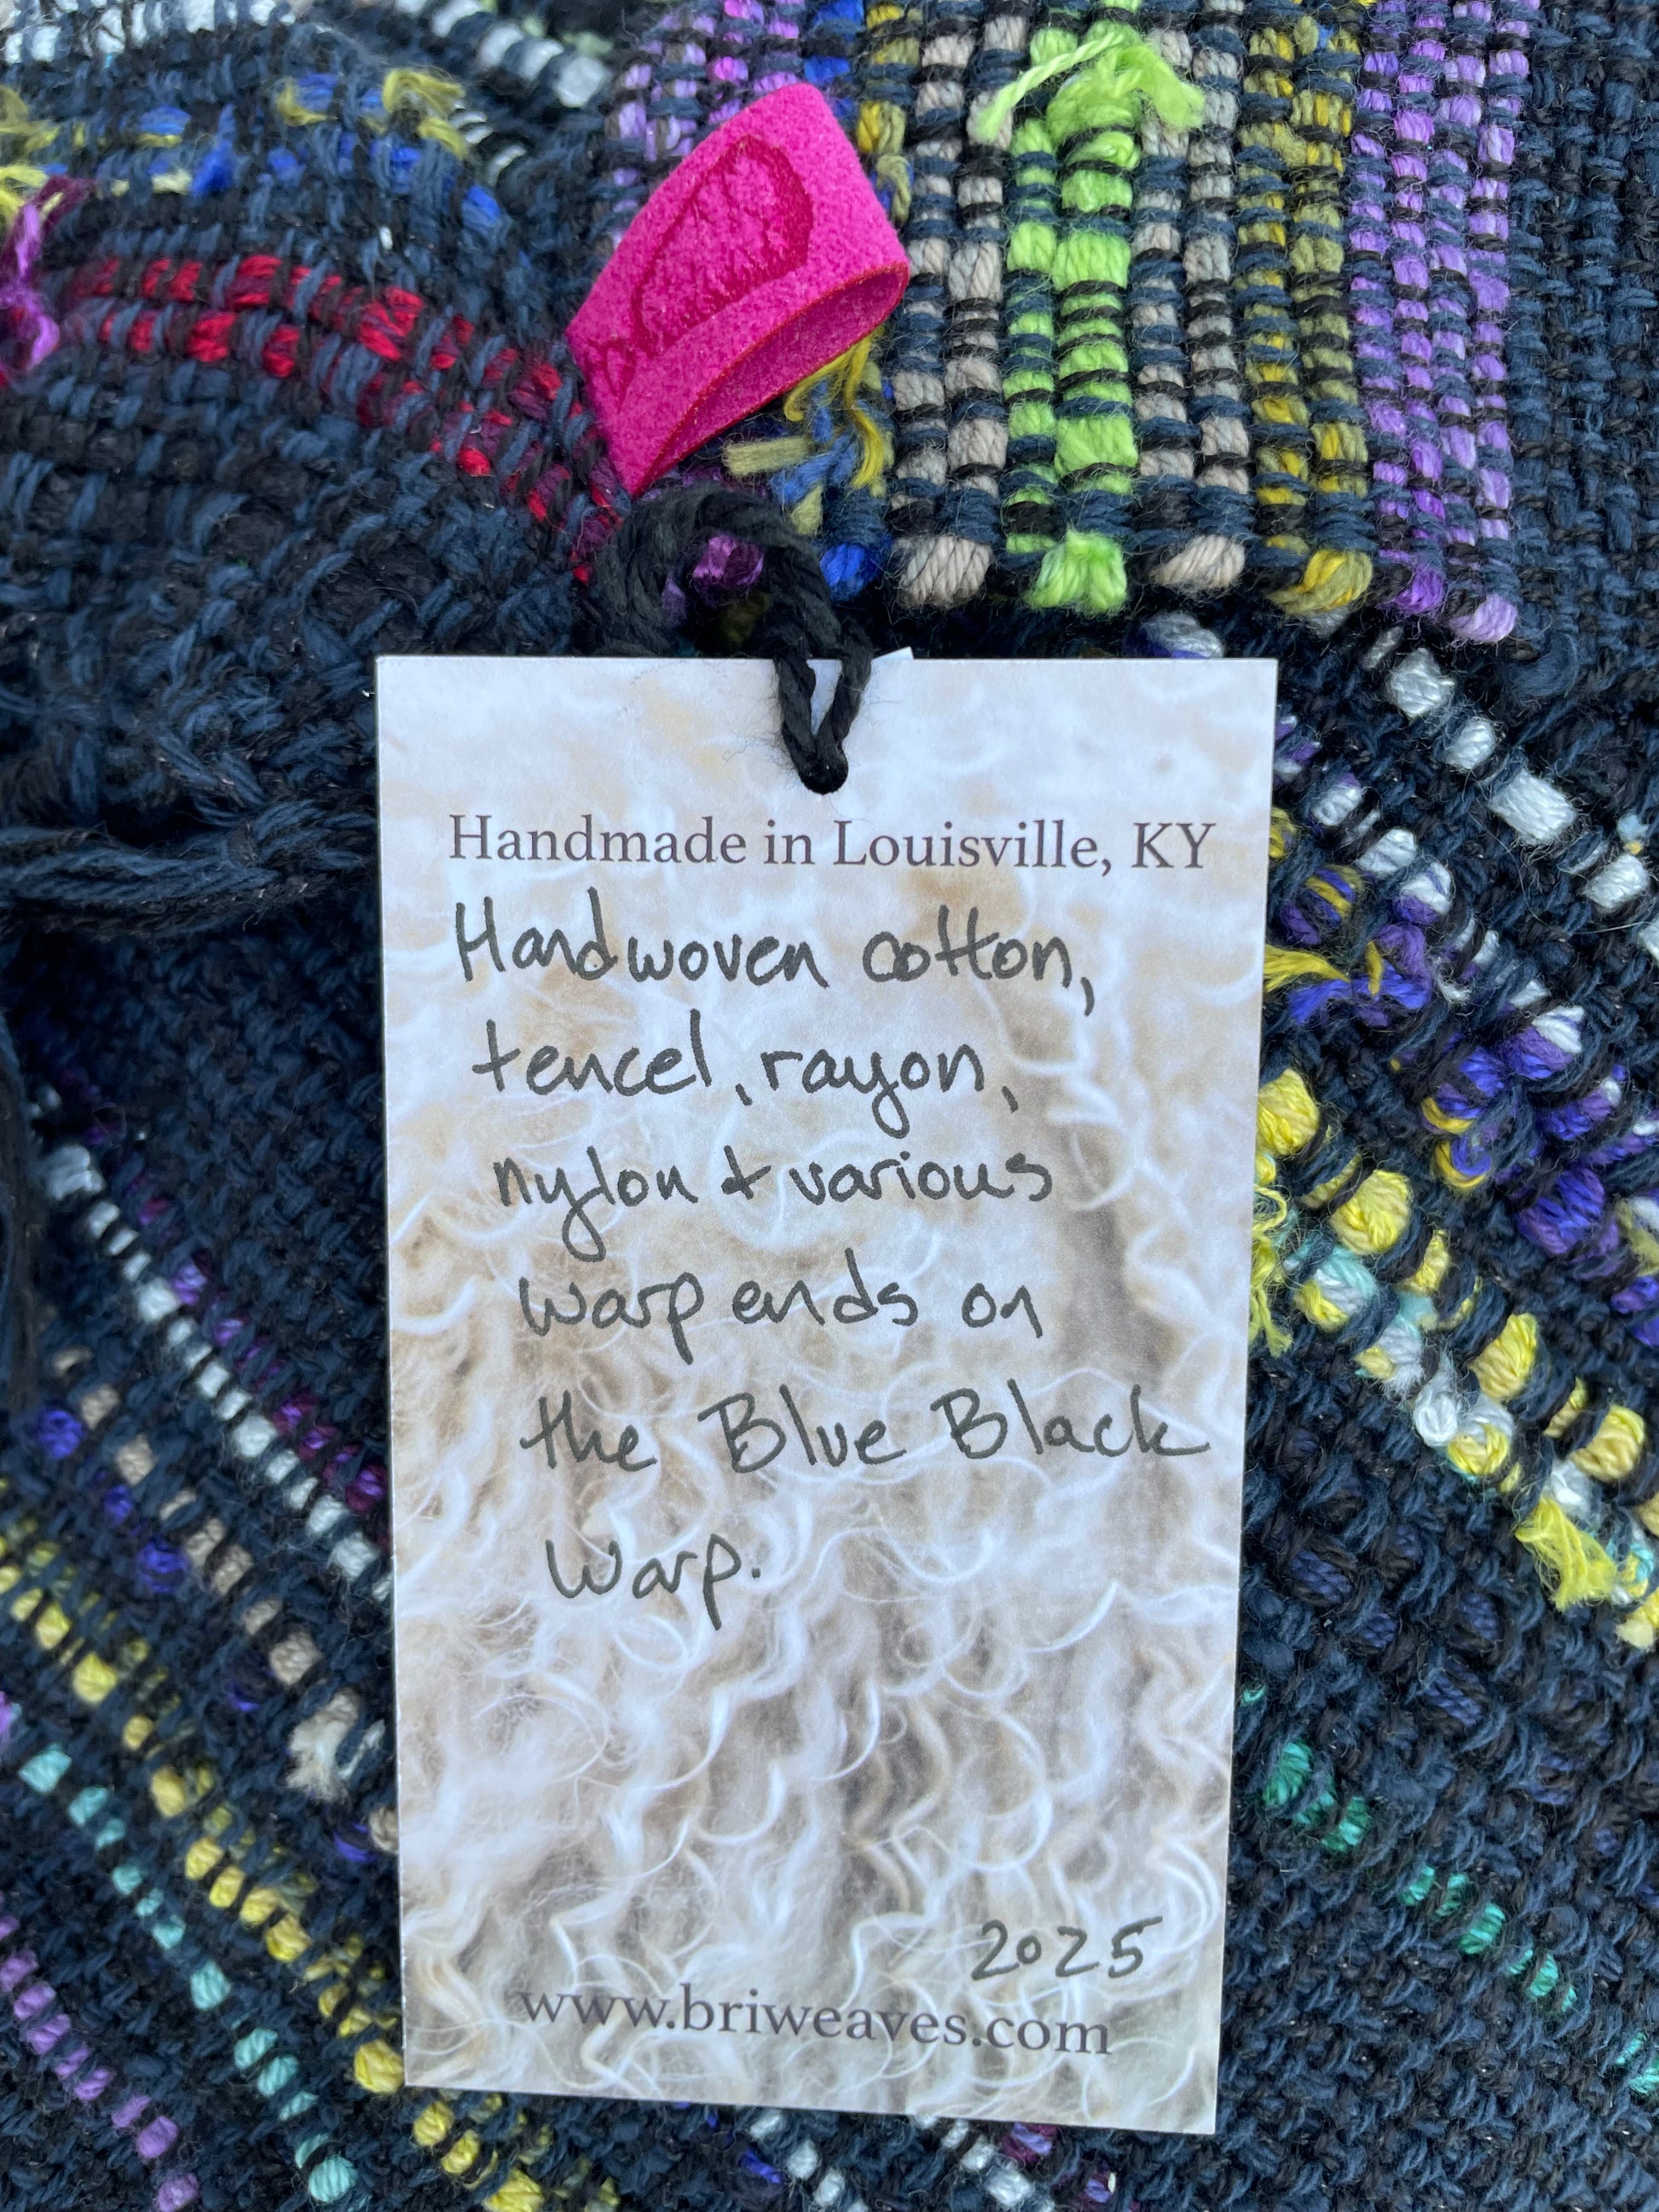 Handmade in Louisville, KY
Handwoven cotton,
tencel, rayon,
nylon + various
warp ends on
the Blue Black
warp.
2025
www.briweaves.com